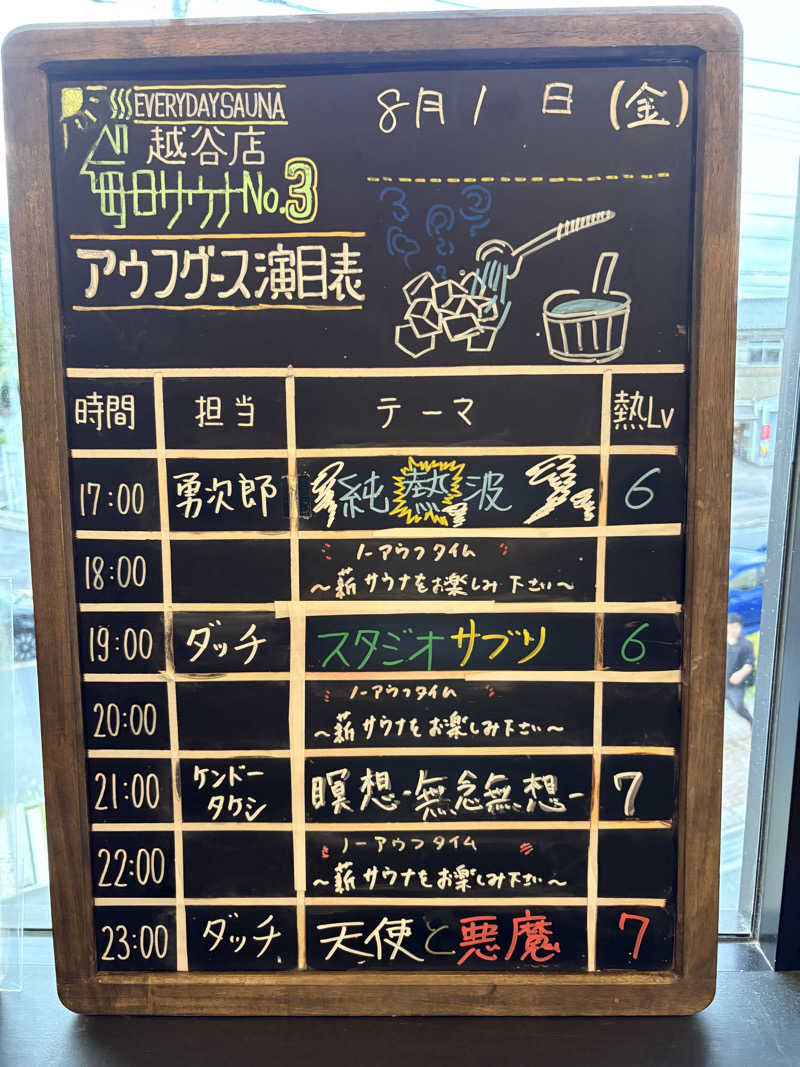 EVERYDAYSAUNA
越谷店
毎日サウナNo.3
アウフグース演目表
8月1日(金)
時間 担当 テーマ 熱Lv
17:00 勇次郎 純熱波 6
18:00 ノーアウフタイム
~薪サウナをお楽しみ下さい~
19:00 ダッチ スタジオサブリ 6
20:00 ノーアウフタイム
~薪サウナをお楽しみ下さい~
21:00 ケンドータケシ 瞑想-無念無想- 7
22:00 ノーアウフタイム
~薪サウナをお楽しみ下さい~
23:00 ダッチ 天使と悪魔 7